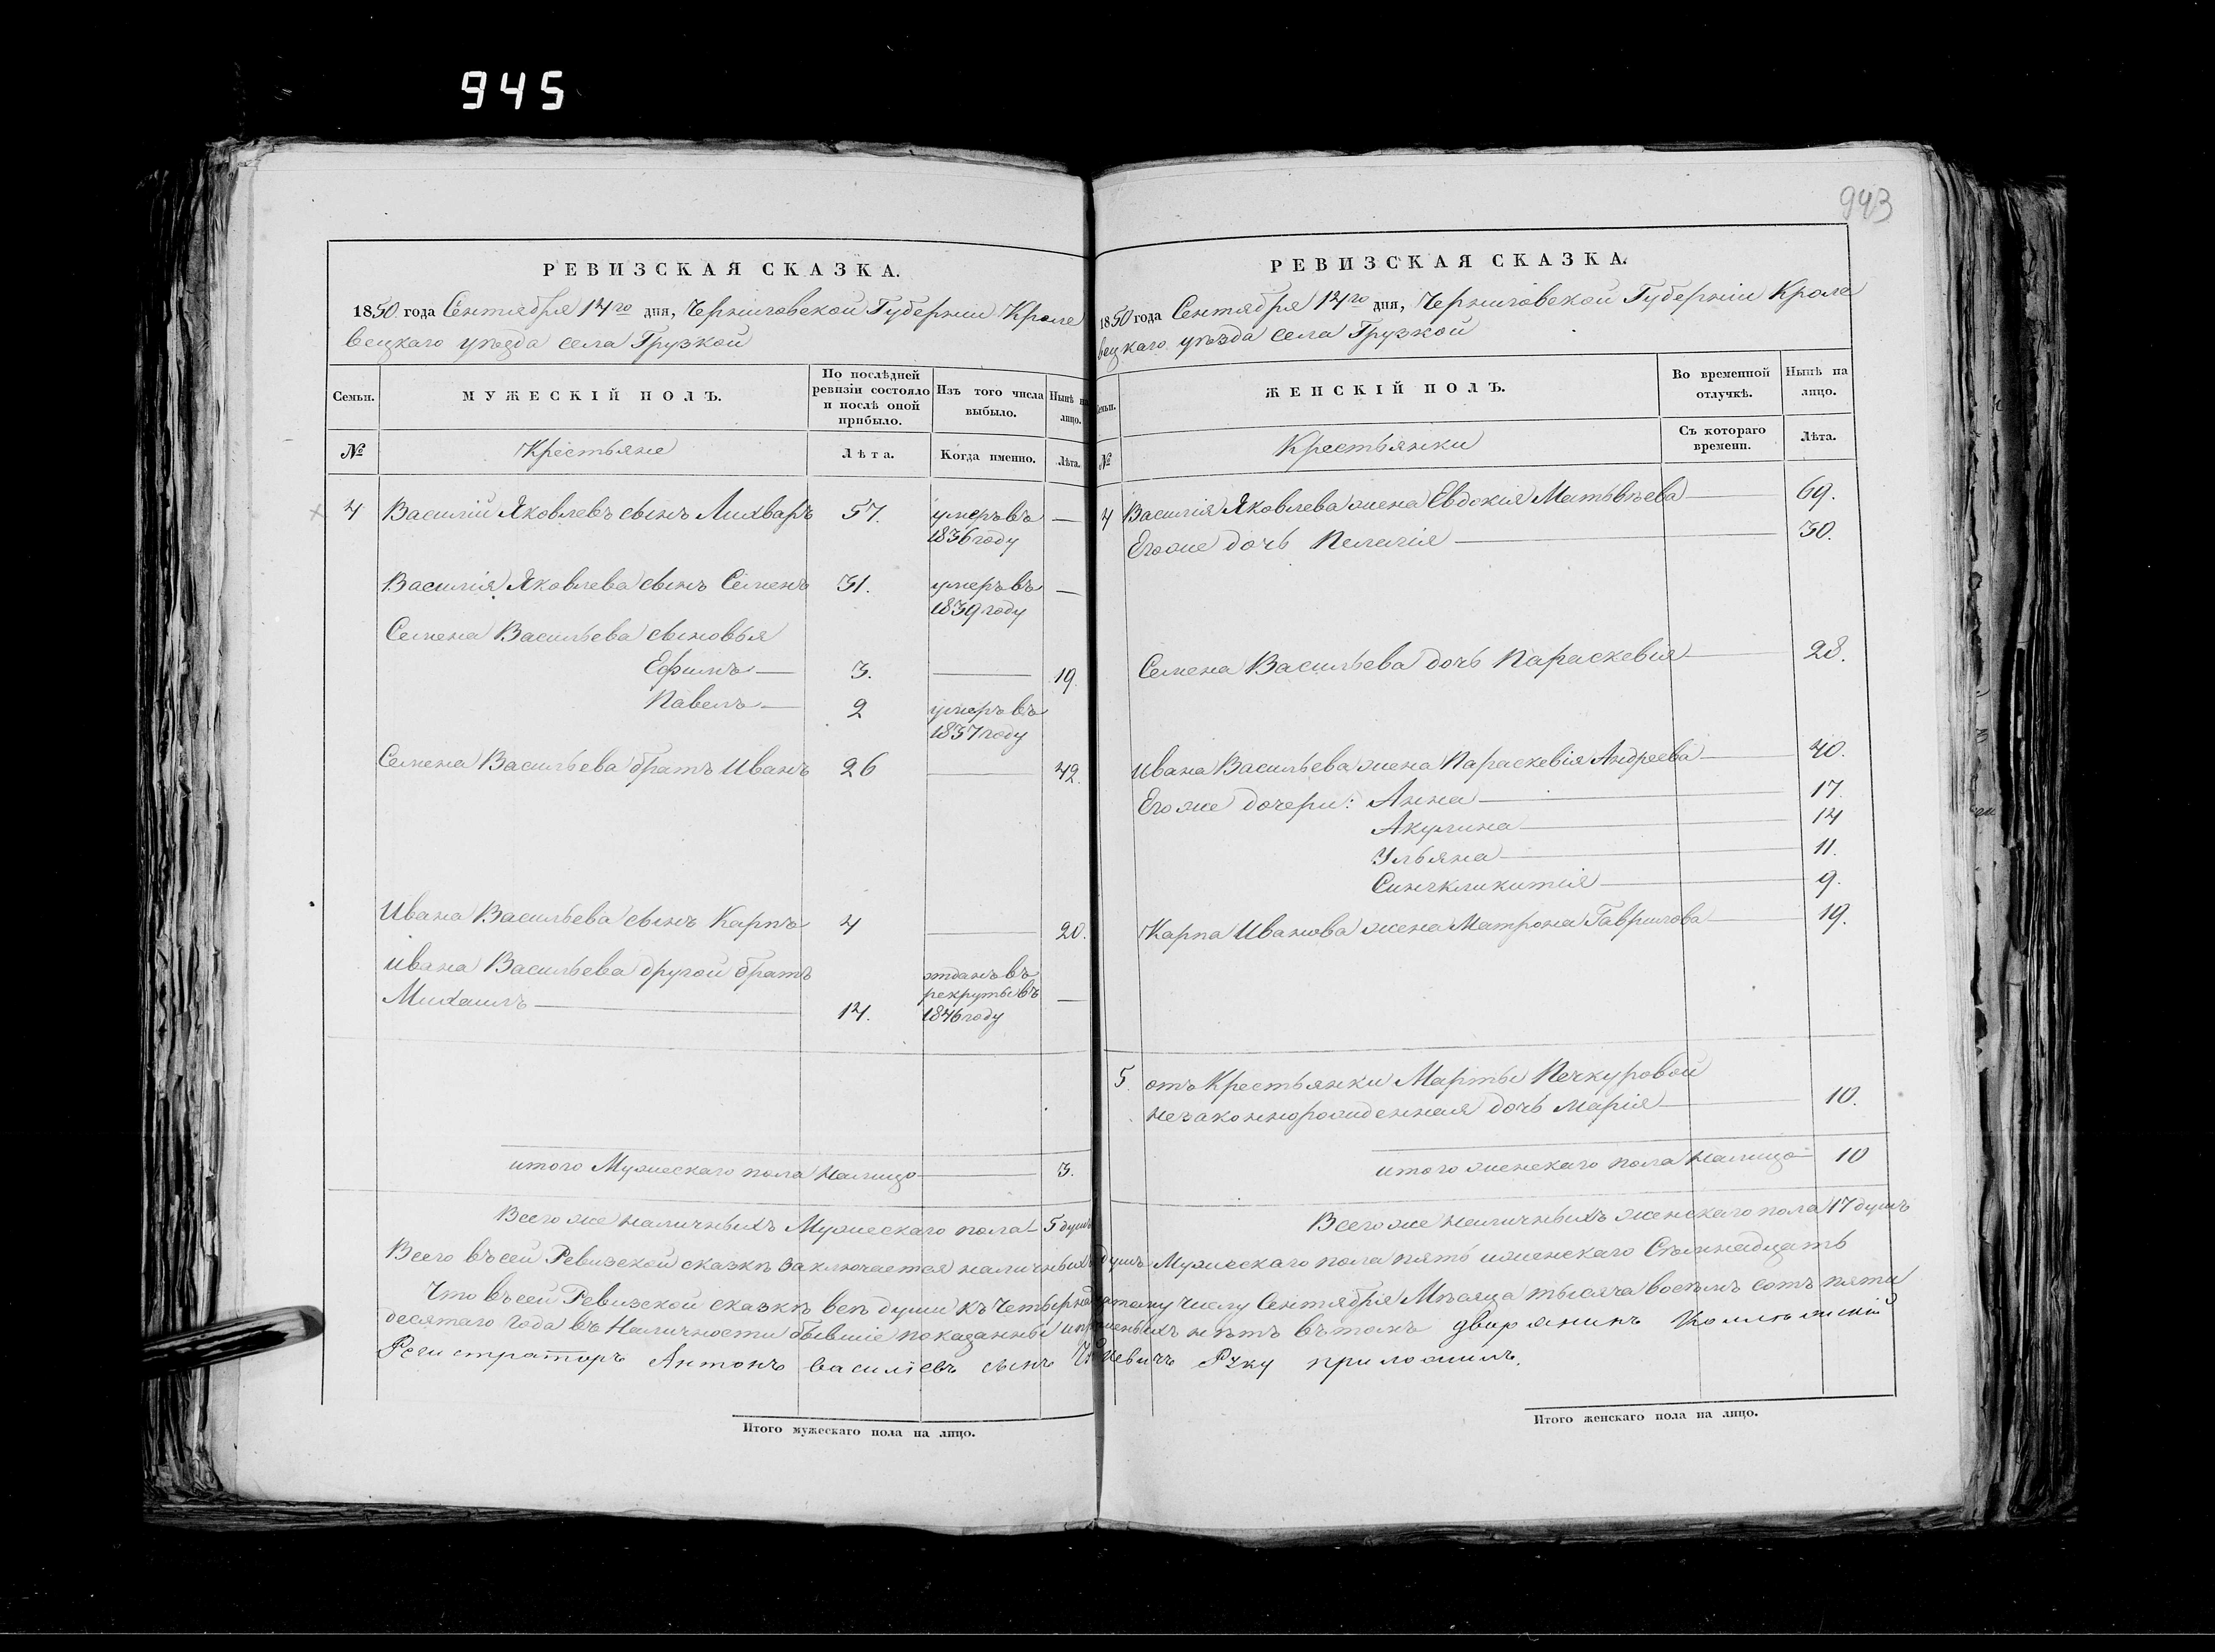 945
943
РЕВИЗСКАЯ СКАЗКА.
1850 года Сентября 14го дня, Черниговской Губернии Кроле
вецкаго уѣзда села Грузкой
Семьи.
МУЖЕСКІЙ ПОЛЪ.
По послѣдней
ревизіи состояло
и послѣ оной
прибыло.
Изъ того числа
выбыло.
Нынѣ на
лицо.
№
Крестьяне
Лѣта.
Когда именно.
Лѣта.
4 Василій Яковлевъ сынъ Лихваръ 57. умеръ въ —
1836 году
Василія Яковлева сынъ Семенъ 31. умеръ въ —
1839 году
Семена Васильева сыновья
Ефимъ — 3. — 19.
Павелъ — 2 умеръ въ
1837 году
Семена Васильева братъ Иванъ 26 — 42.
Ивана Васильева сынъ Карпъ 4 — 20.
Ивана Васильева другой братъ отданъ въ
Михаилъ — 14. рекруты въ —
1846 году
итого Мужескаго пола налицо — 3.
Всего же наличныхъ Мужескаго пола — 5 душъ
РЕВИЗСКАЯ СКАЗКА.
1850 года Сентября 14го дня, Черниговской Губерніи Кроле
вецкаго уѣзда села Грузкой
Семьи.
ЖЕНСКІЙ ПОЛЪ.
Во временной
отлучкѣ.
Нынѣ на
лицо.
№
Крестьянки
Съ котораго
времени.
Лѣта.
4 Василія Яковлева жена Евдокія Матвѣева — 69.
Его же дочь Пелагія — 30.
Семена Васильева дочь Параскевія — 28.
Ивана Васильева жена Параскевія Андреева — 40.
Его же дочери: Анна — 17.
Акулина — 14
Ульяна — 11.
Синкликитія — 9.
Карпа Иванова жена Матрона Гаврилова — 19.
5. отъ Крестьянки Марты Печкуровой
незаконнорожденная дочь Марія — 10.
итого женскаго пола налицо — 10
Всего же наличныхъ женскаго пола 17 душъ
Всего въ сей Ревизской сказкѣ заключается наличныхъ душъ Мужескаго пола пять и женскаго Семнадцать
Что въ сей Ревизской сказкѣ всѣ души къ Четырнадцатому числу Сентября Мѣсяца тысяча восемь сотъ пяти
десятаго года въ Наличности бывшіе показанны и нѣтъ въ томъ дворянинъ Колѣжскій
Регистраторъ Антонъ василіевъ сынъ Рѵку приложилъ.
Итого мужескаго пола на лицо.
Итого женскаго пола на лицо.